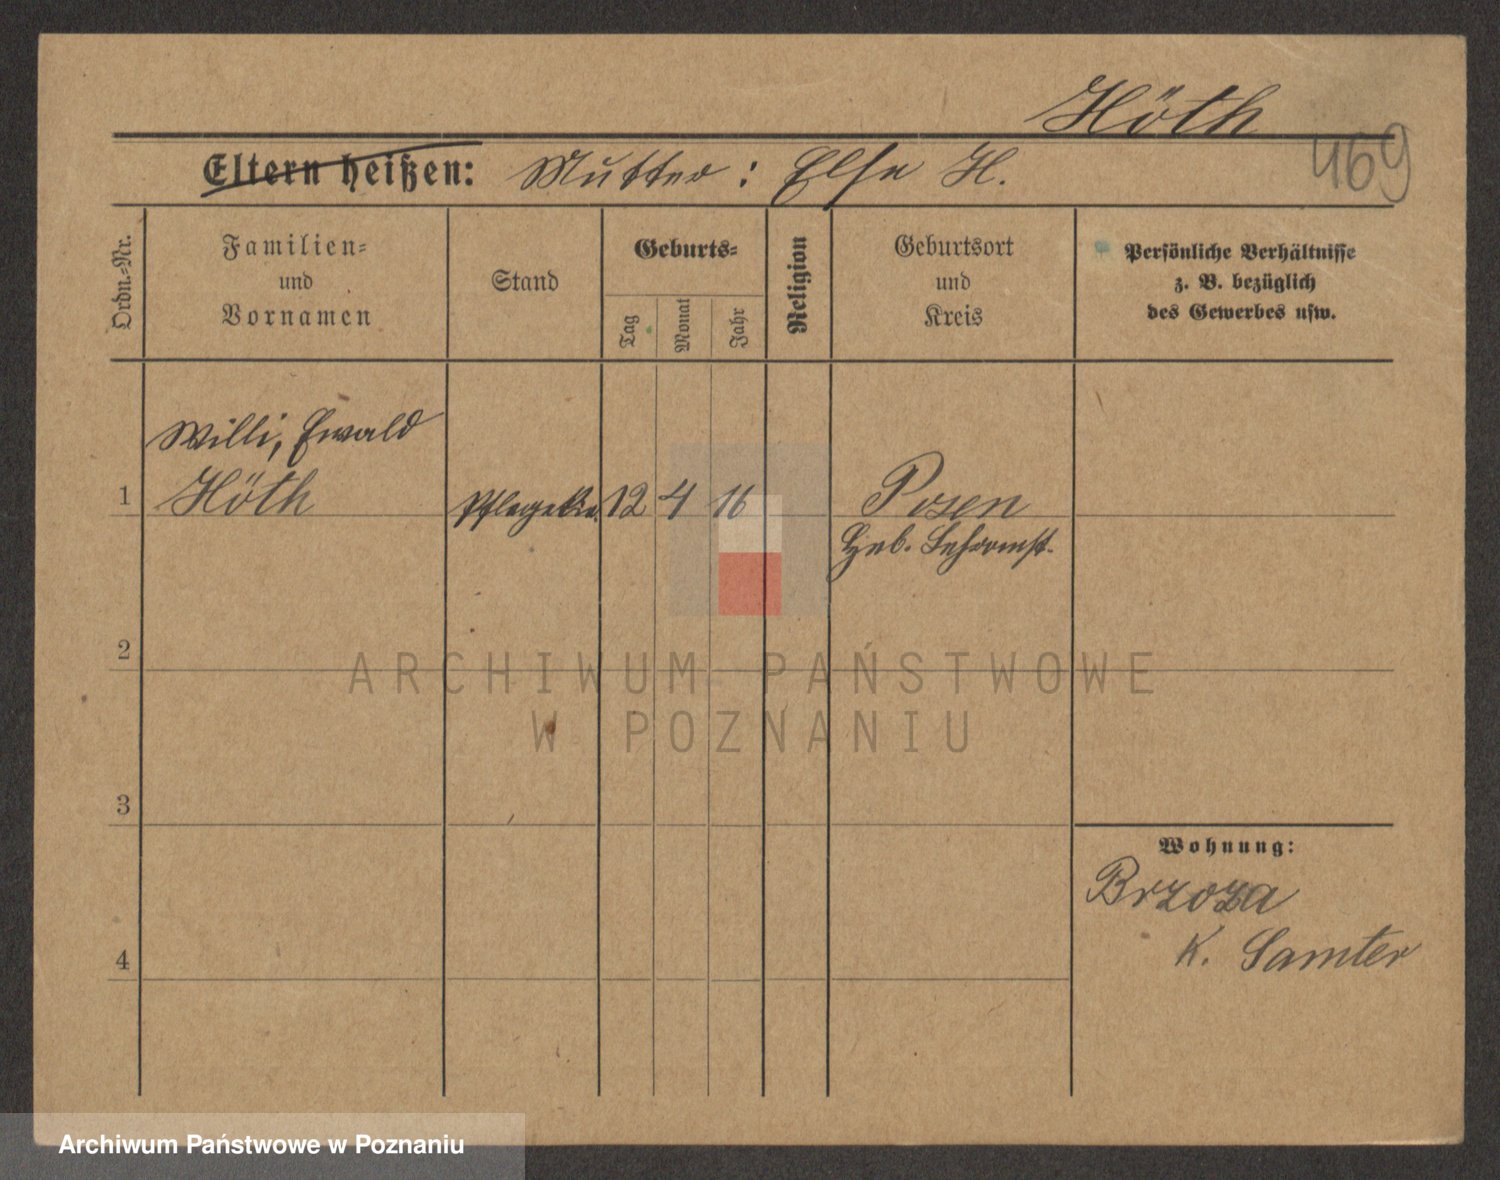 Höth
469
Eltern heißen: Mutter: Else H.
Ordn.-Nr.
Familien-
und
Vornamen
Stand
Geburts-
Tag
Monat
Jahr
Religion
Geburtsort
und
Kreis
Persönliche Verhältnisse
z. B. bezüglich
des Gewerbes usw.
Willi, Ewald
1 Höth Pflegeki. 12 4 16 Posen
Heb. Lehranst.
2
ARCHIWUM PAŃSTWOWE
W POZNANIU
3
Wohnung:
Brzoza
4 K. Samter
Archiwum Państwowe w Poznaniu